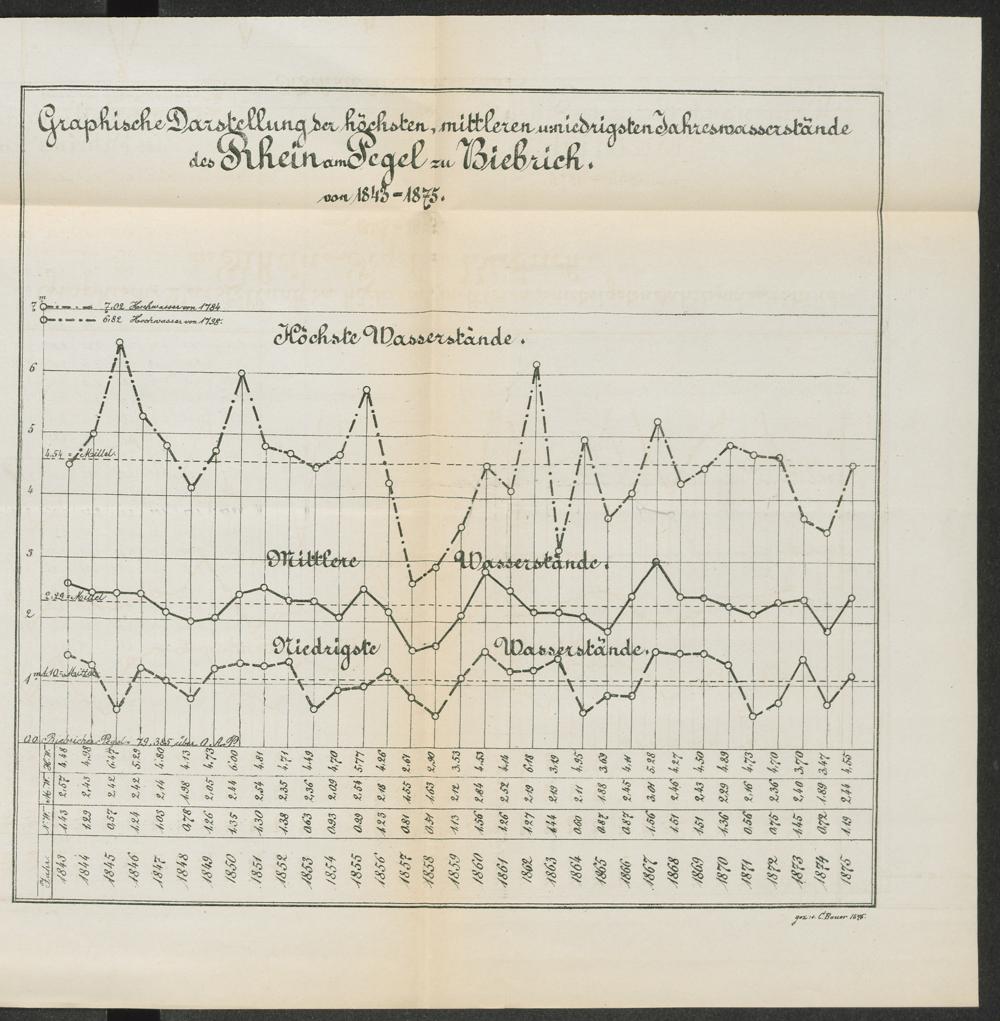 Graphische Darstellung der höchsten, mittleren u. niedrigsten Jahreswasserstände
des Rhein am Pegel zu Biebrich.
von 1843-1875.
7 m 7.02 Hochwasser von 1784
6.82 Hochwasser von
Höchste Wasserstände.
6
5
4.54 = Mittel.
4
3
Mittlere Wasserstände.
Mittel
2
Niedrigste Wasserstände.
1 Mittel
0.0 Biebricher Pegel = 79,385 über A.P.
H.W. 4.48 4.98 6.47 5.29 4.80 4.13 4.73 6.00 4.81 4.71 4.49 4.70 5.77 4.26 2.61 2.90 3.53 4.53 4.14 6.18 3.19 4.95 3.69 4.11 5.28 4.27 4.50 4.89 4.73 4.70 3.70 3.47 4.55
M.W. 2.57 2.43 2.42 2.42 2.14 1.98 2.05 2.44 2.54 2.35 2.36 2.09 2.54 2.18 1.55 1.63 2.12 2.84 2.52 2.19 2.19 2.11 1.88 2.45 3.01 2.46 2.43 2.29 2.16 2.36 2.40 1.89 2.44
N.W. 1.43 1.29 0.57 1.24 1.03 0.78 1.26 1.35 1.30 1.38 0.63 0.93 0.99 1.23 0.81 0.51 1.13 1.56 1.26 1.27 1.44 0.60 0.87 0.87 1.56 1.51 1.51 1.36 0.56 0.75 1.45 0.72 1.19
Jahr: 1843 1844 1845 1846 1847 1848 1849 1850 1851 1852 1853 1854 1855 1856 1857 1858 1859 1860 1861 1862 1863 1864 1865 1866 1867 1868 1869 1870 1871 1872 1873 1874 1875
gez. v. C. Bauer